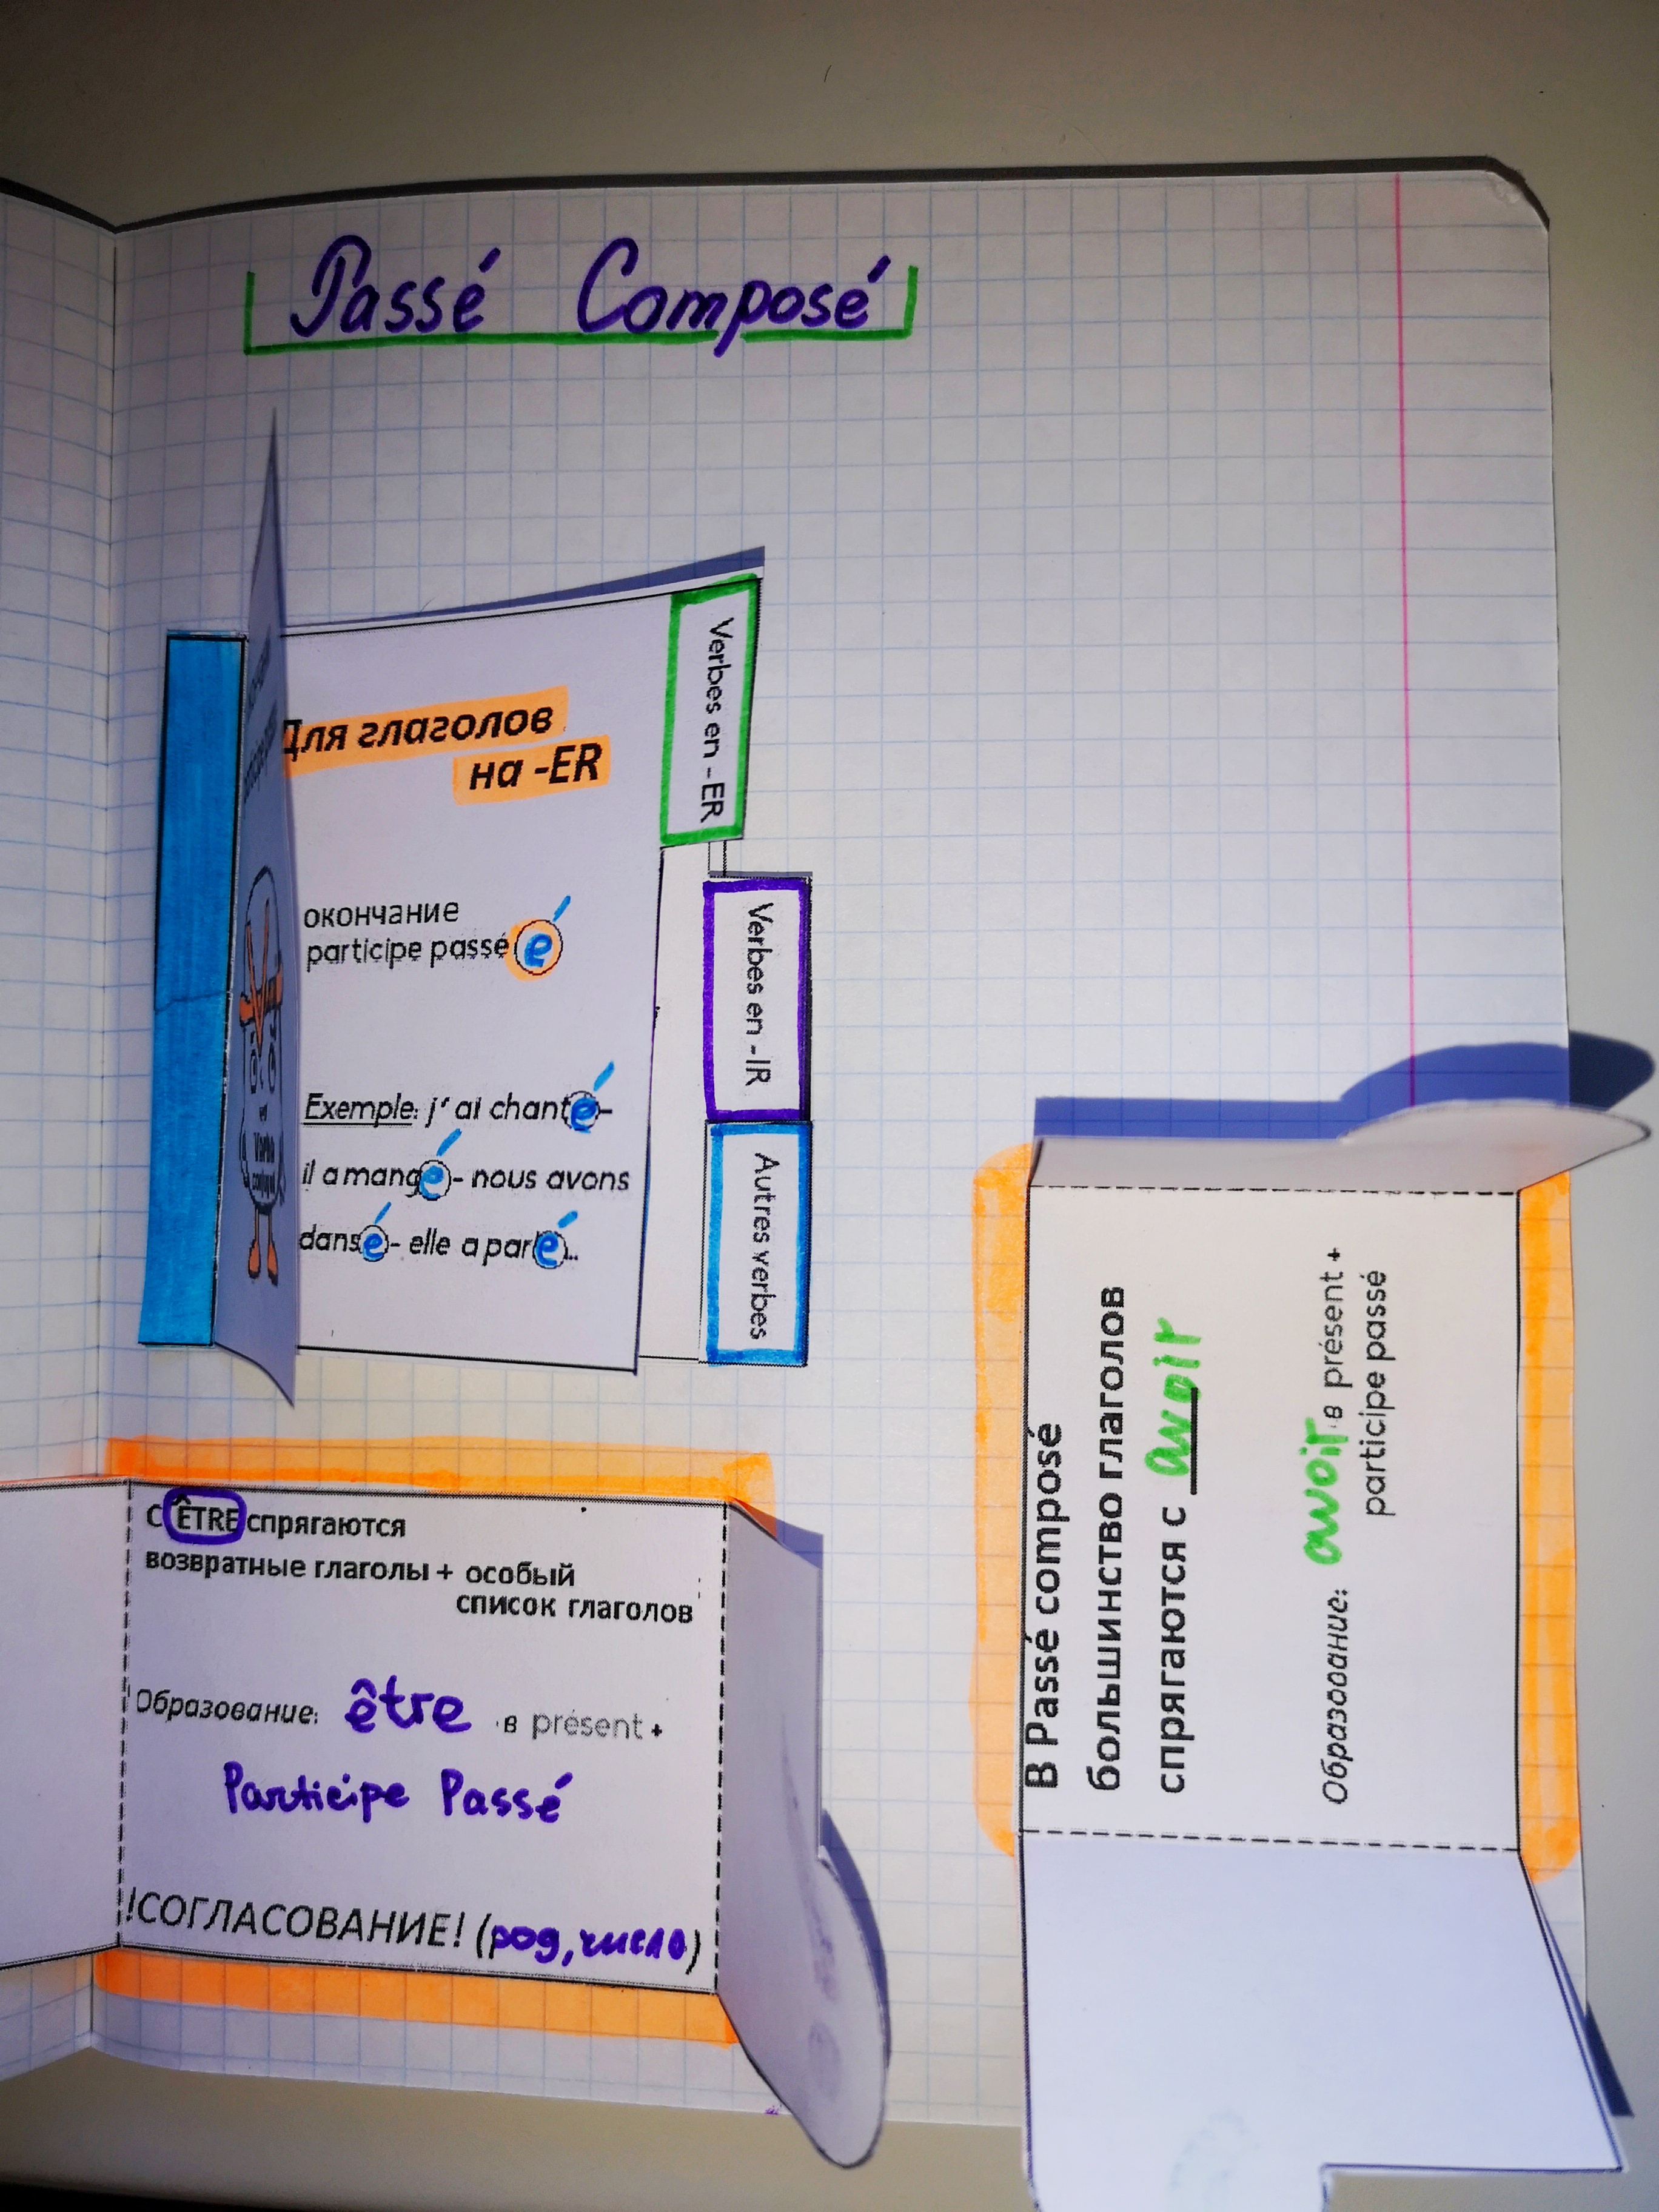 Passé Composé
Для глаголов
на -ER
окончание
participe passé é
Exemple: j' ai chanté-
il a mangé- nous avons
dansé- elle a parlé...
Verbes en -ER
Verbes en -IR
Autres verbes
С ÊTRE спрягаются
возвратные глаголы + особый
список глаголов
Образование: être в présent +
Participe Passé
!СОГЛАСОВАНИЕ! (род, число)
В Passé composé
большинство глаголов
спрягаются с avoir
Образование: avoir в présent +
participe passé